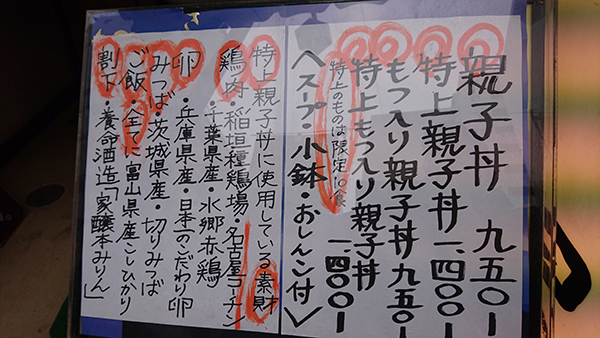 親子丼 九五〇ー
特上親子丼一、四〇〇ー
もつ入り親子丼九五〇ー
特上もつ入り親子丼
一、四〇〇ー
特上のものは限定10食
＜スープ・小鉢・おしんこ付＞
特上親子丼に使用している素財
鶏肉・稲垣種鶏場・名古屋コーチン
・千葉県産・水郷赤鶏
卵・兵庫県産・日本一こだわり卵
みつば・茨城県産・切りみつば
ご飯・全てに富山県産こしひかり
割下・養命酒造「家醸本みりん」